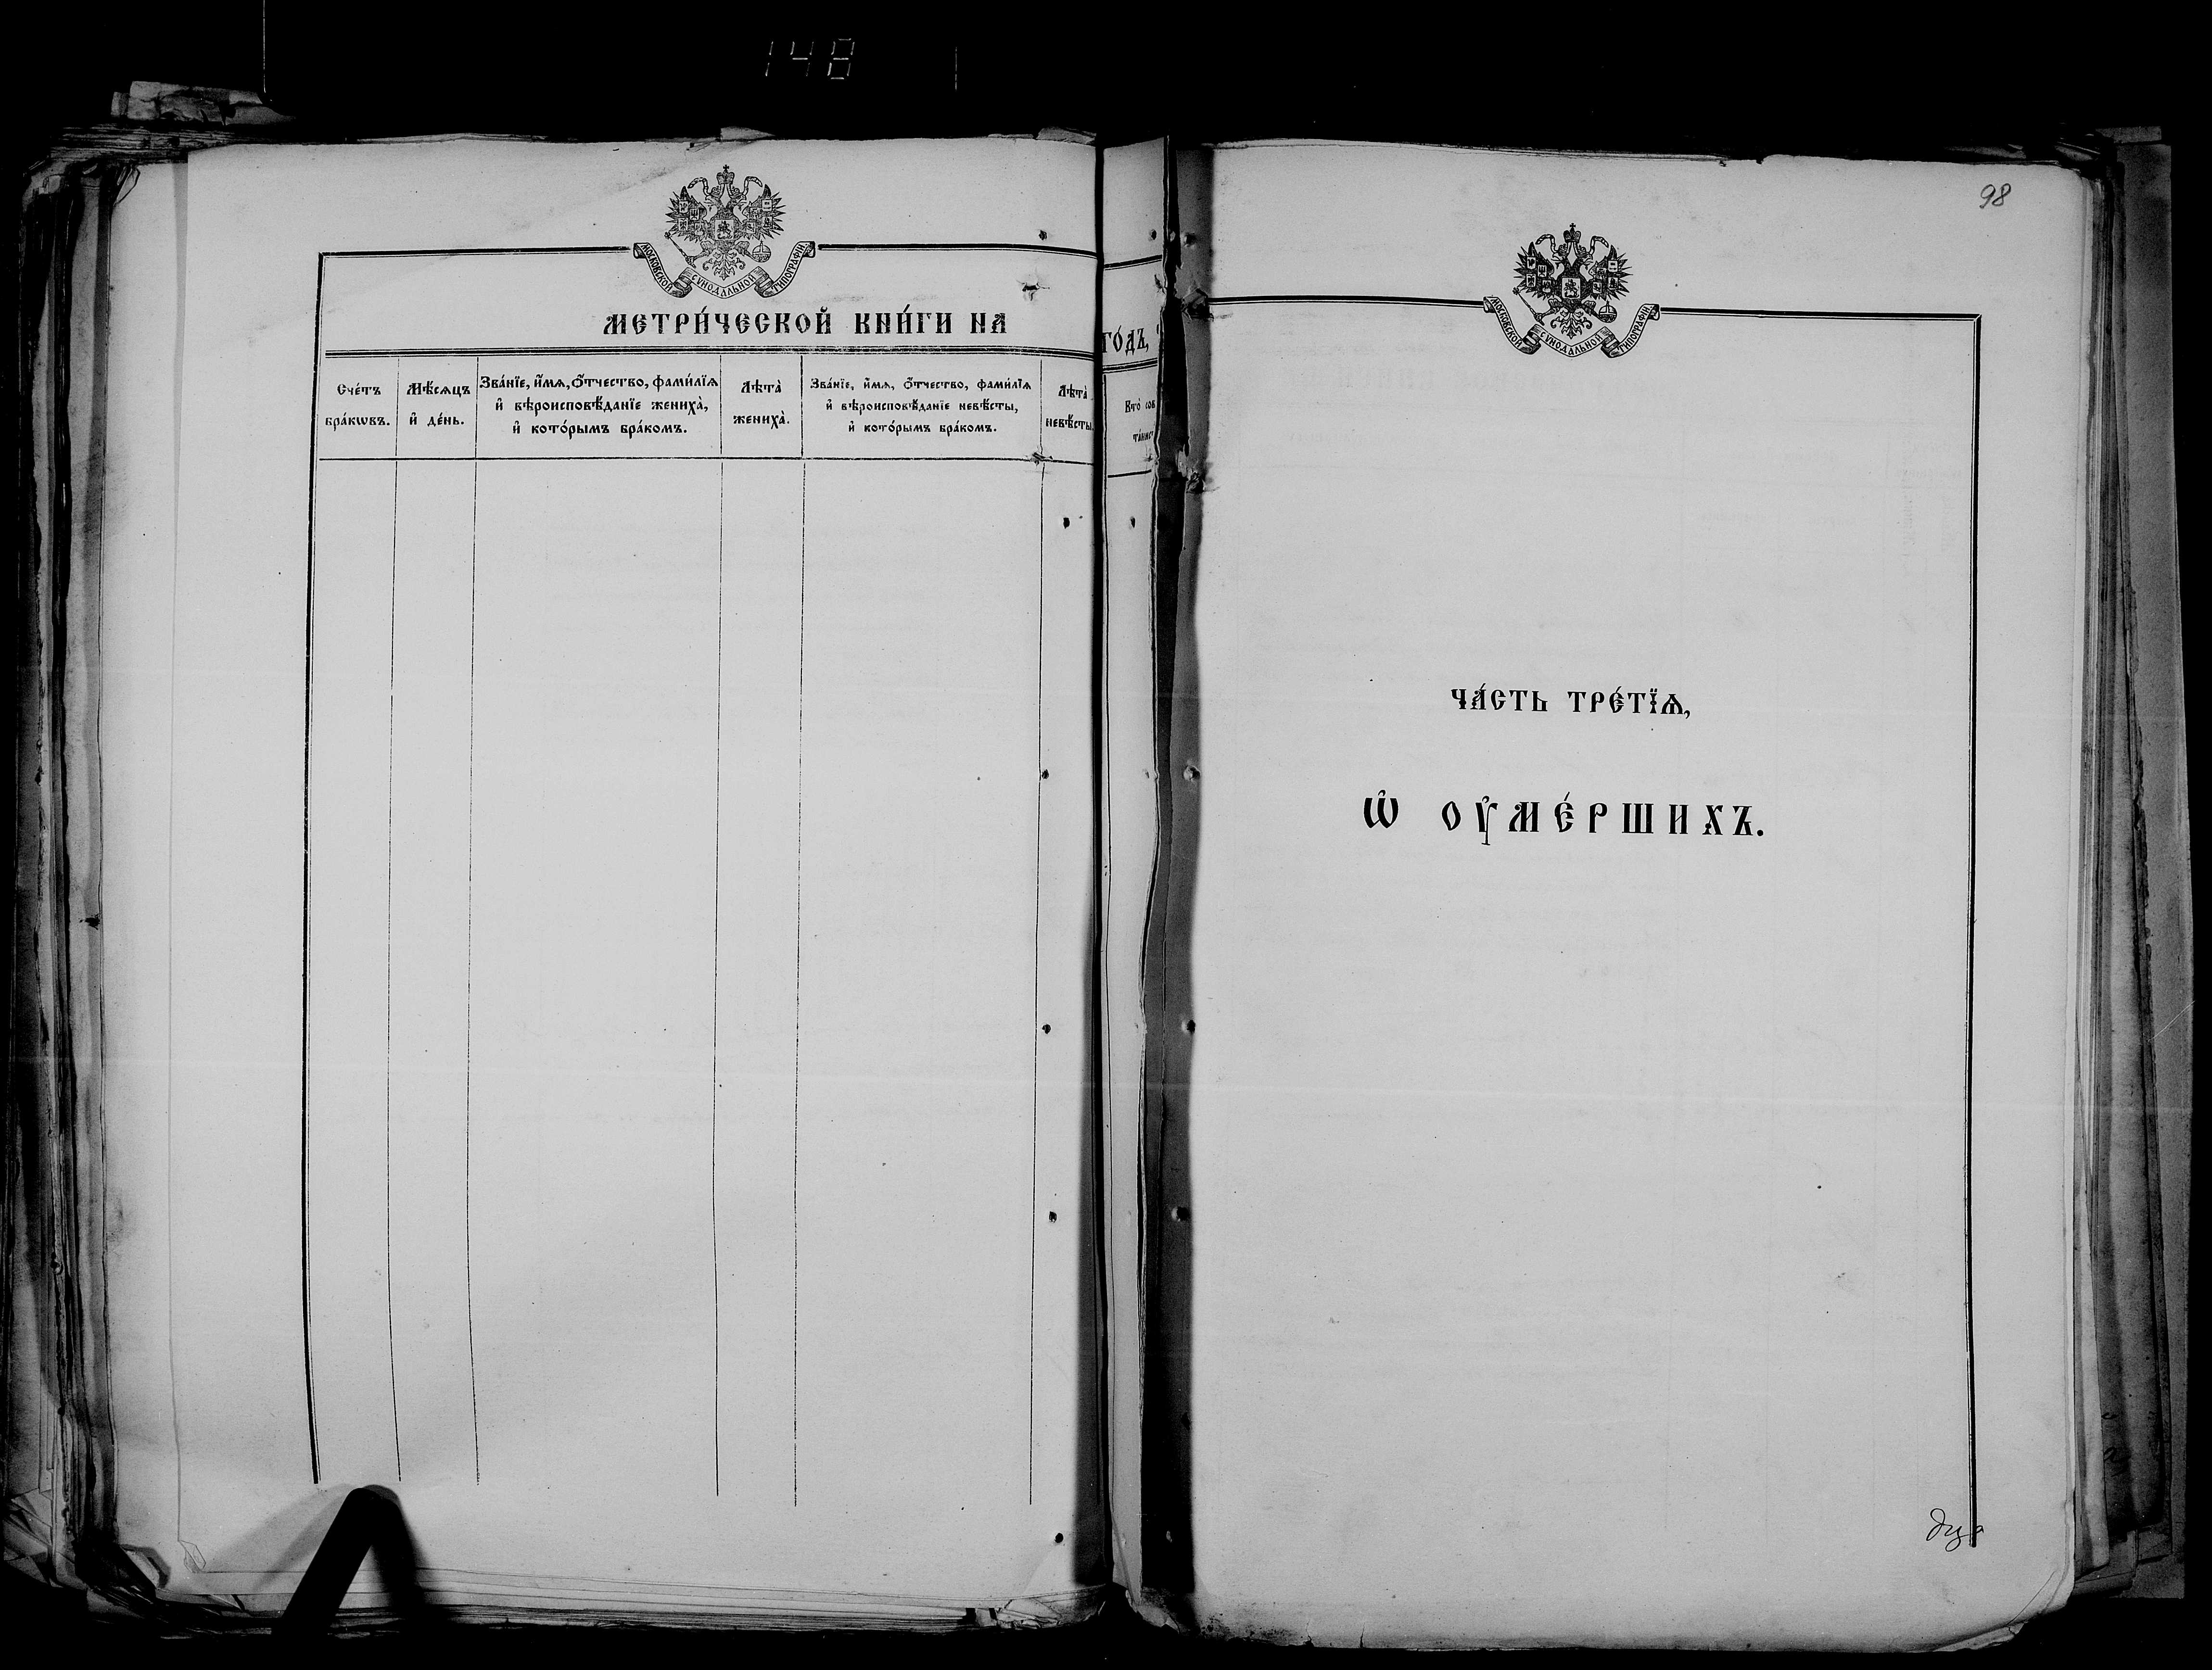 148
МОСКОВСКОЙ СУНОДАЛЬНОЙ ТИПОГРАФІИ
МЕТРИ́ЧЕСКОЙ КНИ́ГИ НА
Сче́тъ
бра́кѡвъ.
Мѣ́сѧцъ
и҆ де́нь.
Зва́нїе, и҆́мѧ, ѻ҆́тчество, фами́лїѧ
и҆ вѣроисповѣ́данїе жениха̀,
и҆ кото́рымъ бра́комъ.
Лѣта̀
жениха̀.
Зва́нїе, и҆́мѧ, ѻ҆́тчество, фами́лїѧ
и҆ вѣроисповѣ́данїе невѣ́сты,
и҆ кото́рымъ бра́комъ.
Лѣта̀
невѣ́сты.
ГО́ДЪ,
Кто̀ сов
98
МОСКОВСКОЙ СУНОДАЛЬНОЙ ТИПОГРАФІИ
ЧА́СТЬ ТРЕ́ТЇѦ,
Ѡ҆ ОУ҆МЕ́РШИХЪ.